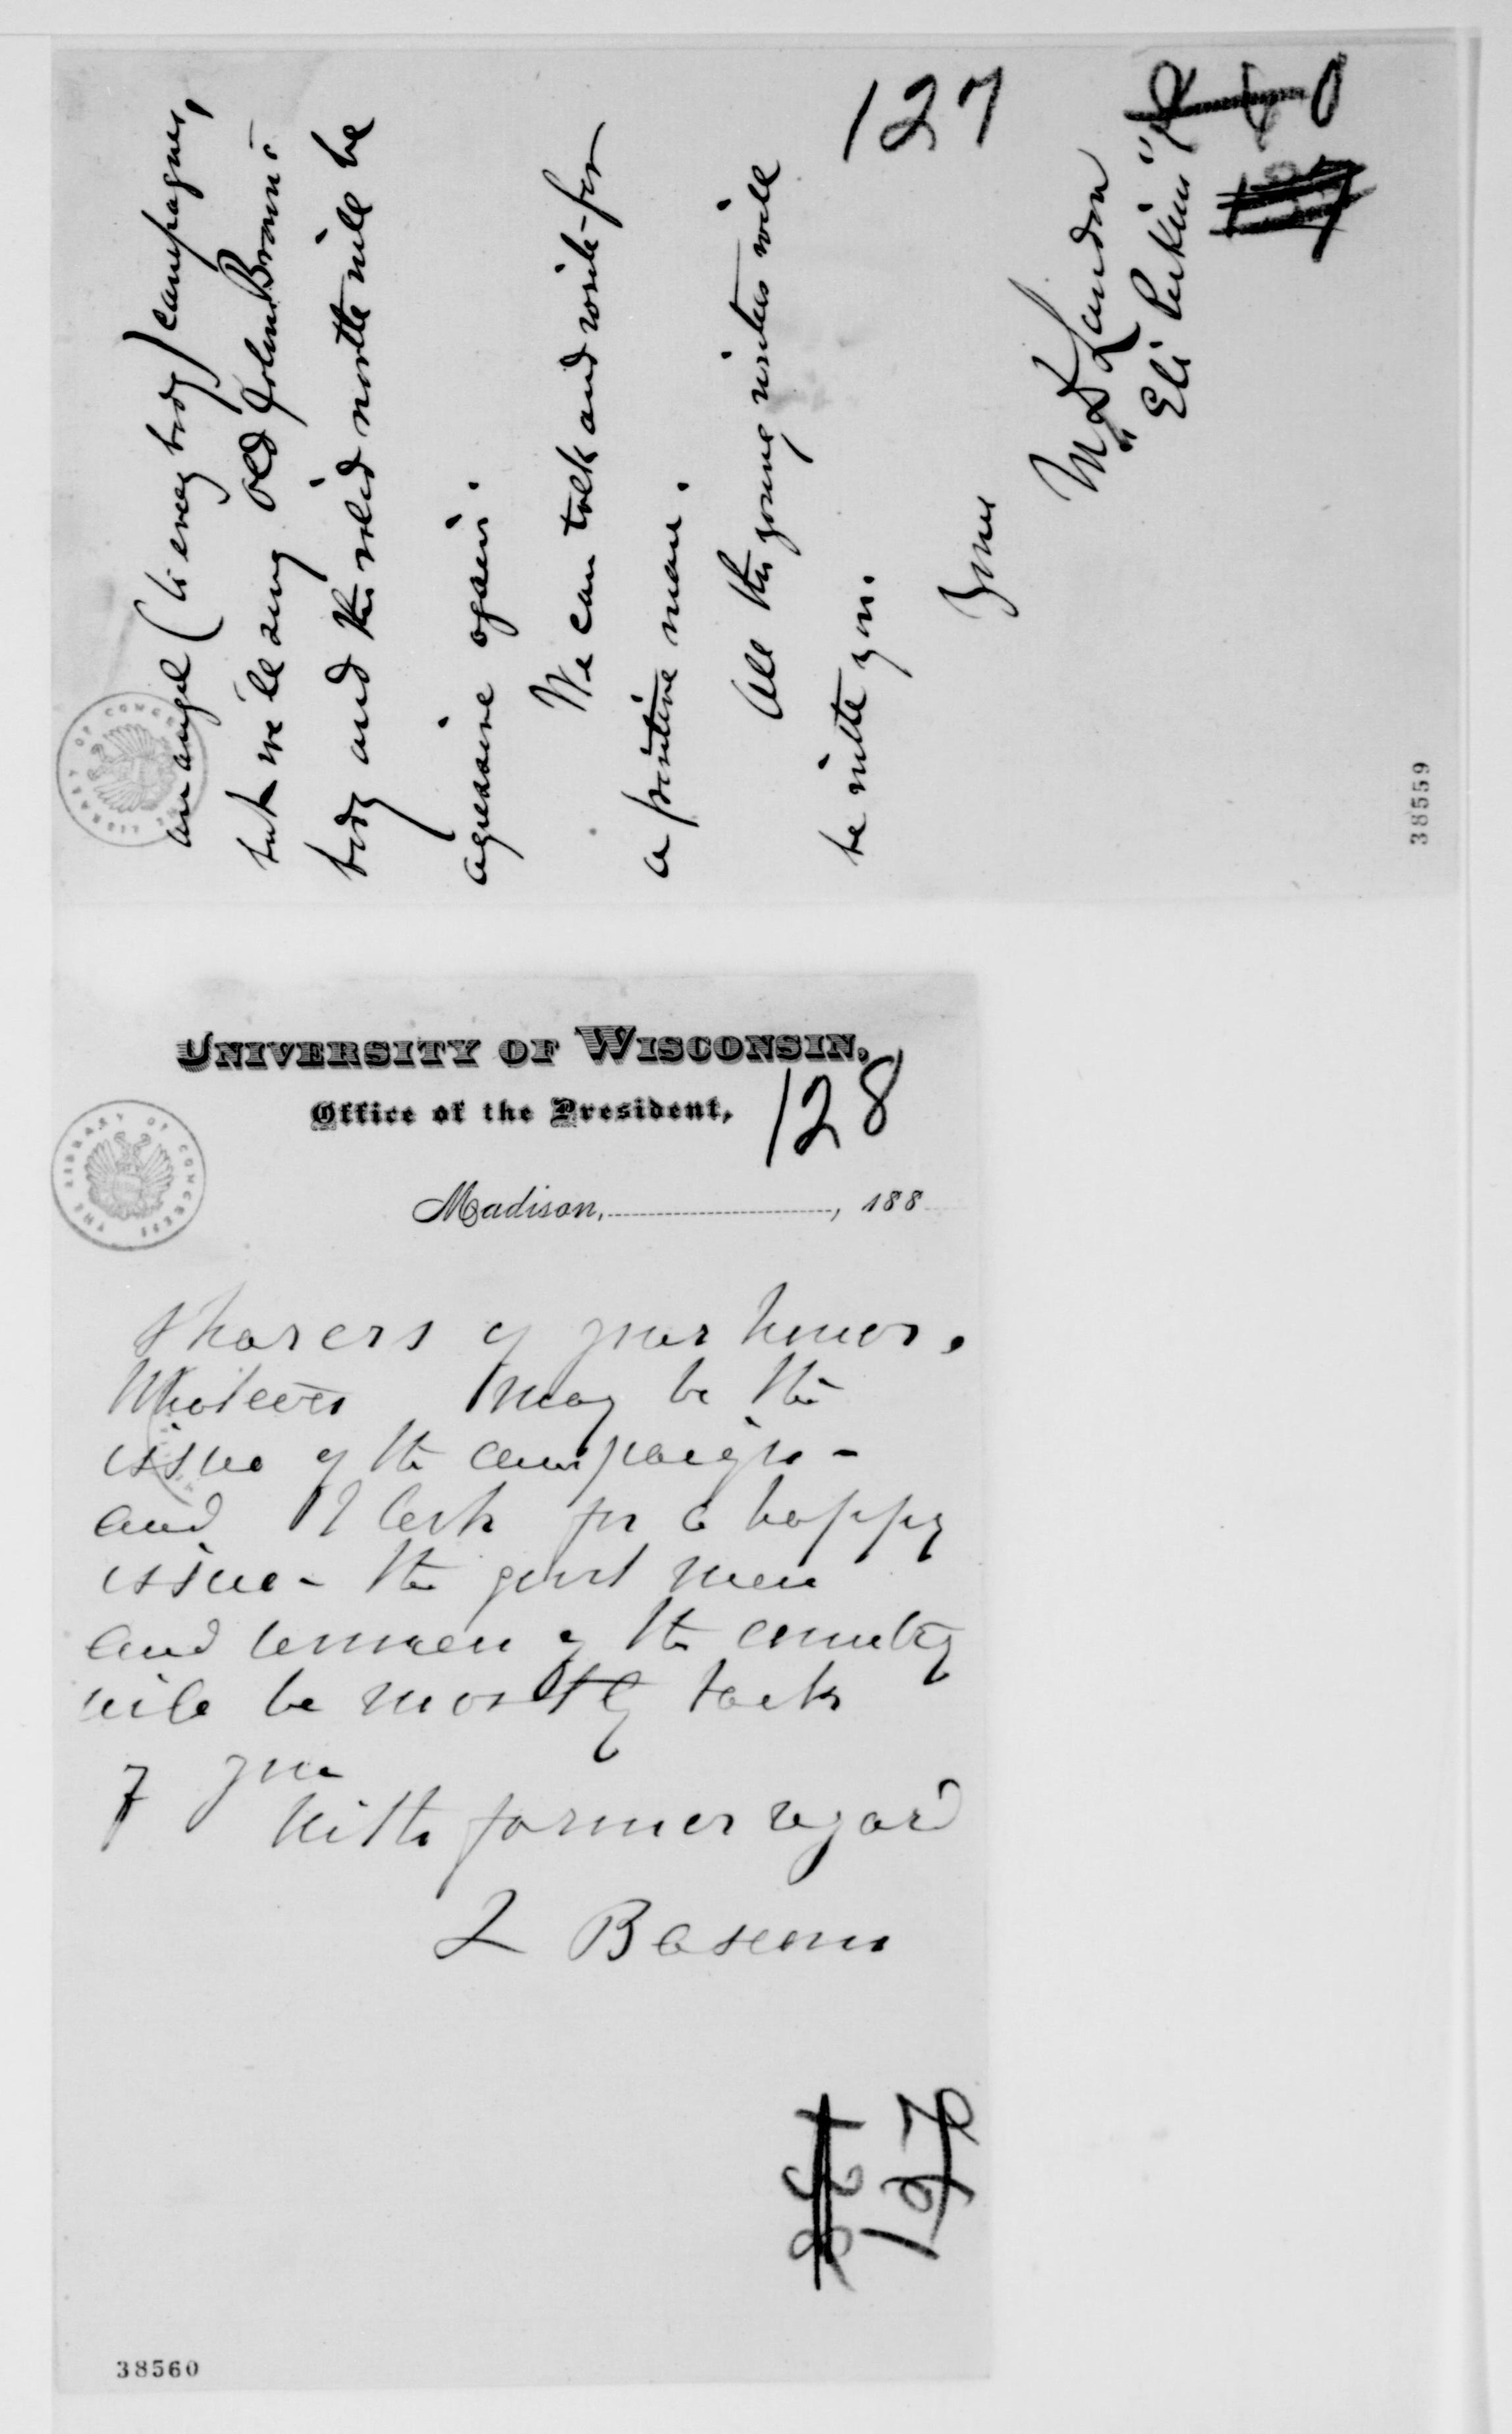 127
an angel (to every body) campagne,
but we'll sing old John Brown's
body and the solid north will be
agressive again.
We can talk and write for
a positive man.
All the young writers will
be with you.
Yours
M D Landon
"Eli Perkins"
38559
UNIVERSITY OF WISCONSIN,
Office of the President,
128
Madison, , 188
THE LIBRARY OF CONGRESS
sharers of your honor.
Whatever may be the
issue of the campaign -
and I look for a happy
issue - the good men
and women of the country
will be mostly back
of you
With former regard
J Bascom
127
38560